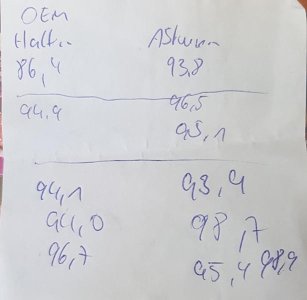 OEM
86,4 93,8
94,9 96,5
95,1
94,1 93,4
94,0 98,7
96,7 95,4 98,9